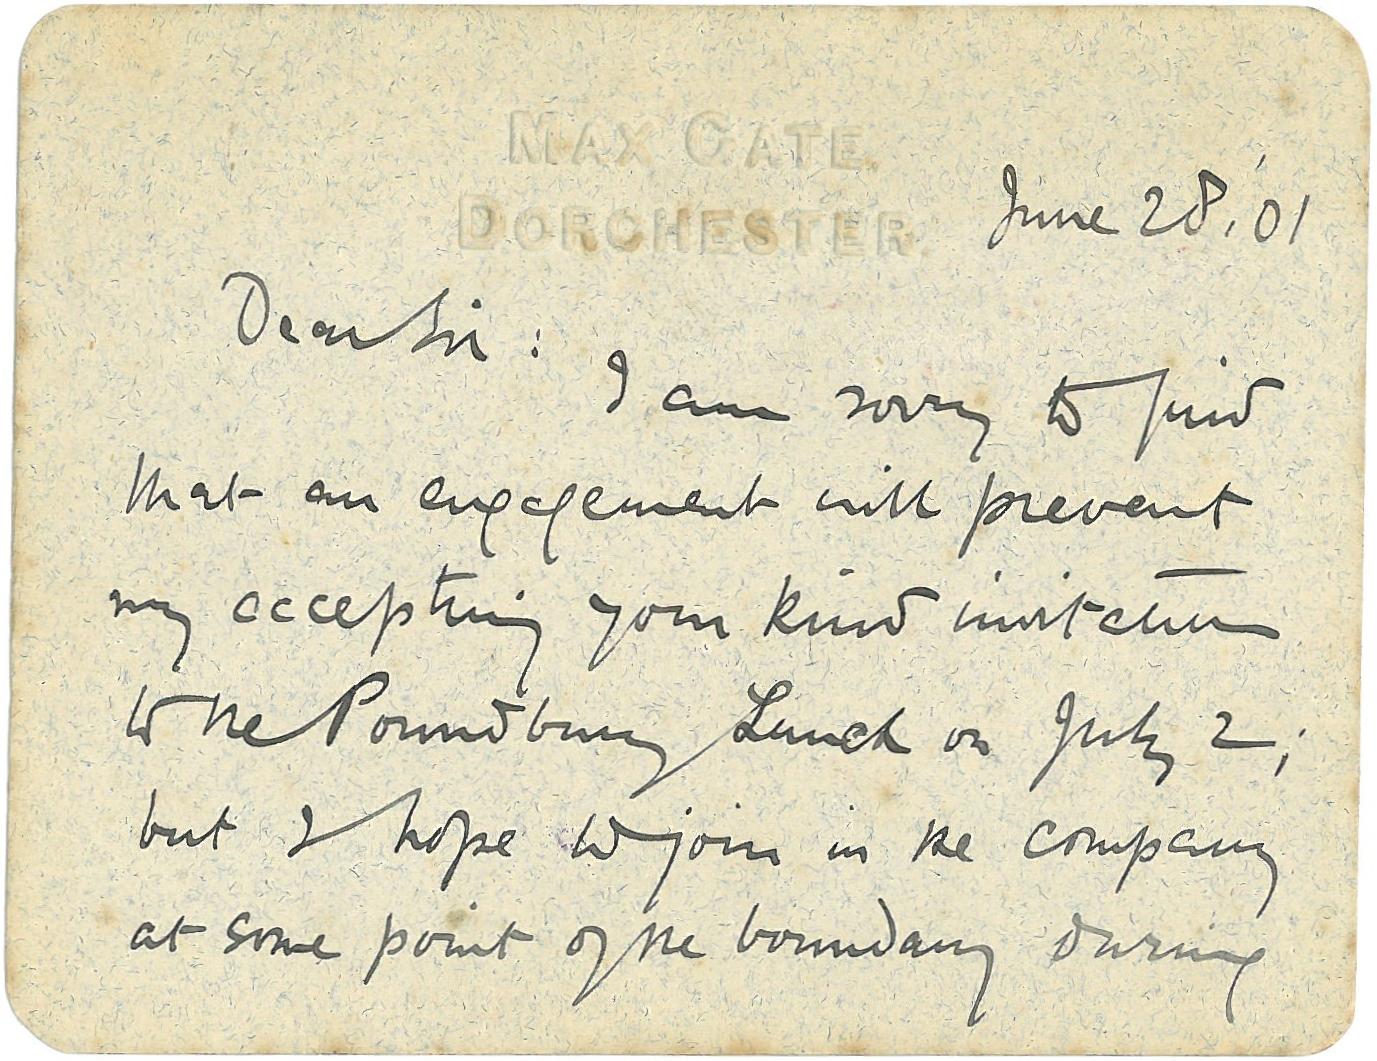 MAX GATE.
DORCHESTER.
June 28, '01
Dear Sir:
I am sorry to find
that an engagement will prevent
my accepting your kind invitation
to the Poundbury Lunch on July 2;
but I hope to join in the company
at some point of the boundary during